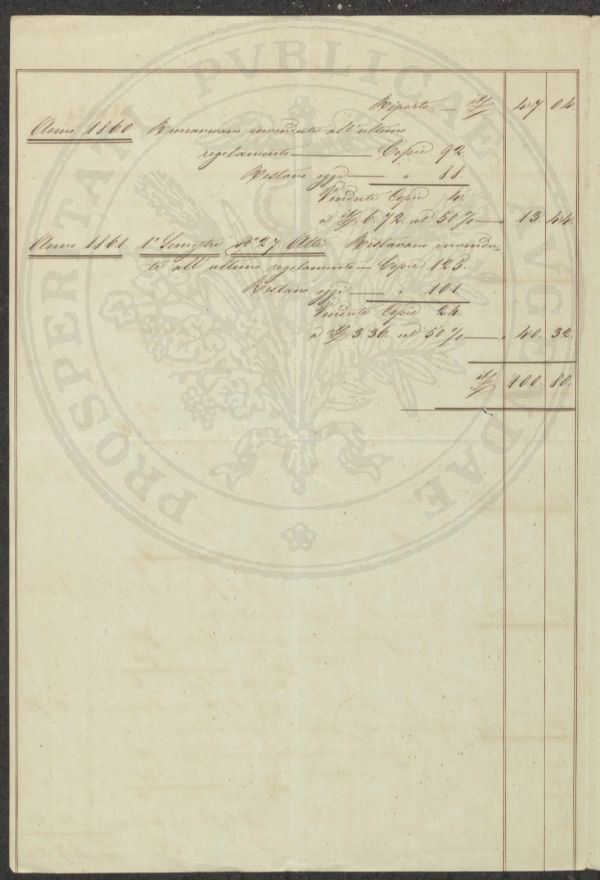 Riporto — 47 04
Anno 1860 Rimanevano invendute all'ultimo
regolamento — Copie 92.
Restano oggi — " 88
Vendute Copie 4.
a 6.72. col 50% — " 13. 44.
Anno 1861 1º Semestre Nº 27 Atti Restavano invendu-
te all'ultimo regolamento — Copie 125.
Restano oggi — " 101
Vendute Copie 24
a 3.36. col 50% — " 40. 32.
100. 80.
PROSPERITATI PUBLICAE AUGENDAE